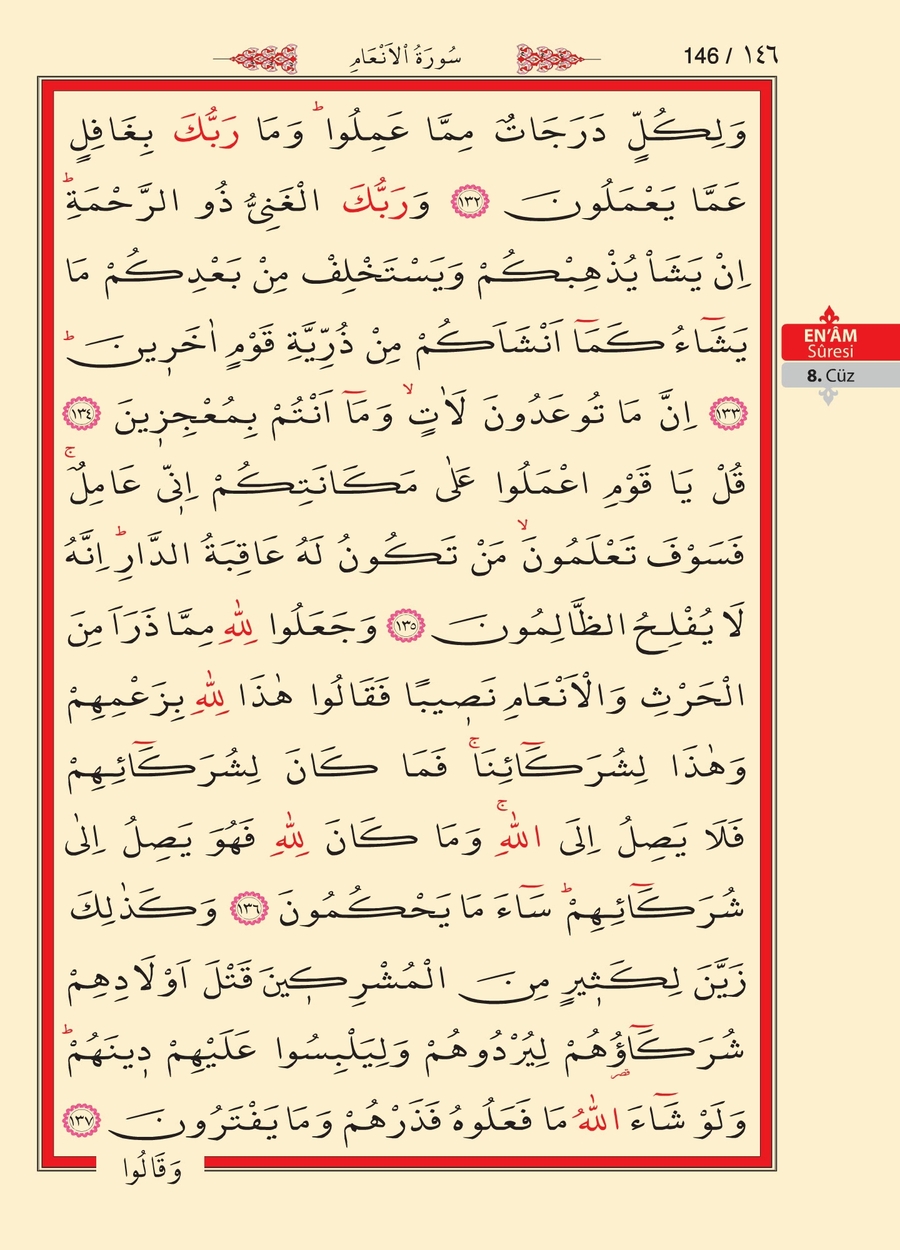 146 / ١٤٦
سُورَةُ الْاَنْعَامِ
وَلِكُلٍّ دَرَجَاتٌ مِمَّا عَمِلُوا ۜ وَمَا رَبُّكَ بِغَافِلٍ
عَمَّا يَعْمَلُونَ ﴿١٣٢﴾ وَرَبُّكَ الْغَنِىُّ ذُو الرَّحْمَةِ ۜ
اِنْ يَشَأْ يُذْهِبْكُمْ وَيَسْتَخْلِفْ مِنْ بَعْدِكُمْ مَا
يَشَٓاءُ كَمَٓا اَنْشَاَكُمْ مِنْ ذُرِّيَّةِ قَوْمٍ اٰخَرٖينَ ۜ
﴿١٣٣﴾ اِنَّ مَا تُوعَدُونَ لَاٰتٍ ۙ وَمَٓا اَنْتُمْ بِمُعْجِزٖينَ ﴿١٣٤﴾
قُلْ يَا قَوْمِ اعْمَلُوا عَلٰى مَكَانَتِكُمْ اِنّٖى عَامِلٌ ۚ
فَسَوْفَ تَعْلَمُونَ ۙ مَنْ تَكُونُ لَهُ عَاقِبَةُ الدَّارِ ۜ اِنَّهُ
لَا يُفْلِحُ الظَّالِمُونَ ﴿١٣٥﴾ وَجَعَلُوا لِلّٰهِ مِمَّا ذَرَاَ مِنَ
الْحَرْثِ وَالْاَنْعَامِ نَصٖيبًا فَقَالُوا هٰذَا لِلّٰهِ بِزَعْمِهِمْ
وَهٰذَا لِشُرَكَٓائِنَا ۚ فَمَا كَانَ لِشُرَكَٓائِهِمْ
فَلَا يَصِلُ اِلَى اللّٰهِ ۚ وَمَا كَانَ لِلّٰهِ فَهُوَ يَصِلُ اِلٰى
شُرَكَٓائِهِمْ ۜ سَٓاءَ مَا يَحْكُمُونَ ﴿١٣٦﴾ وَكَذٰلِكَ
زَيَّنَ لِكَثٖيرٍ مِنَ الْمُشْرِكٖينَ قَتْلَ اَوْلَادِهِمْ
شُرَكَٓاؤُهُمْ لِيُرْدُوهُمْ وَلِيَلْبِسُوا عَلَيْهِمْ دٖينَهُمْ ۜ
قصر
وَلَوْ شَٓاءَ اللّٰهُ مَا فَعَلُوهُ فَذَرْهُمْ وَمَا يَفْتَرُونَ ﴿١٣٧﴾
وَقَالُوا
EN'ÂM
Sûresi
8. Cüz